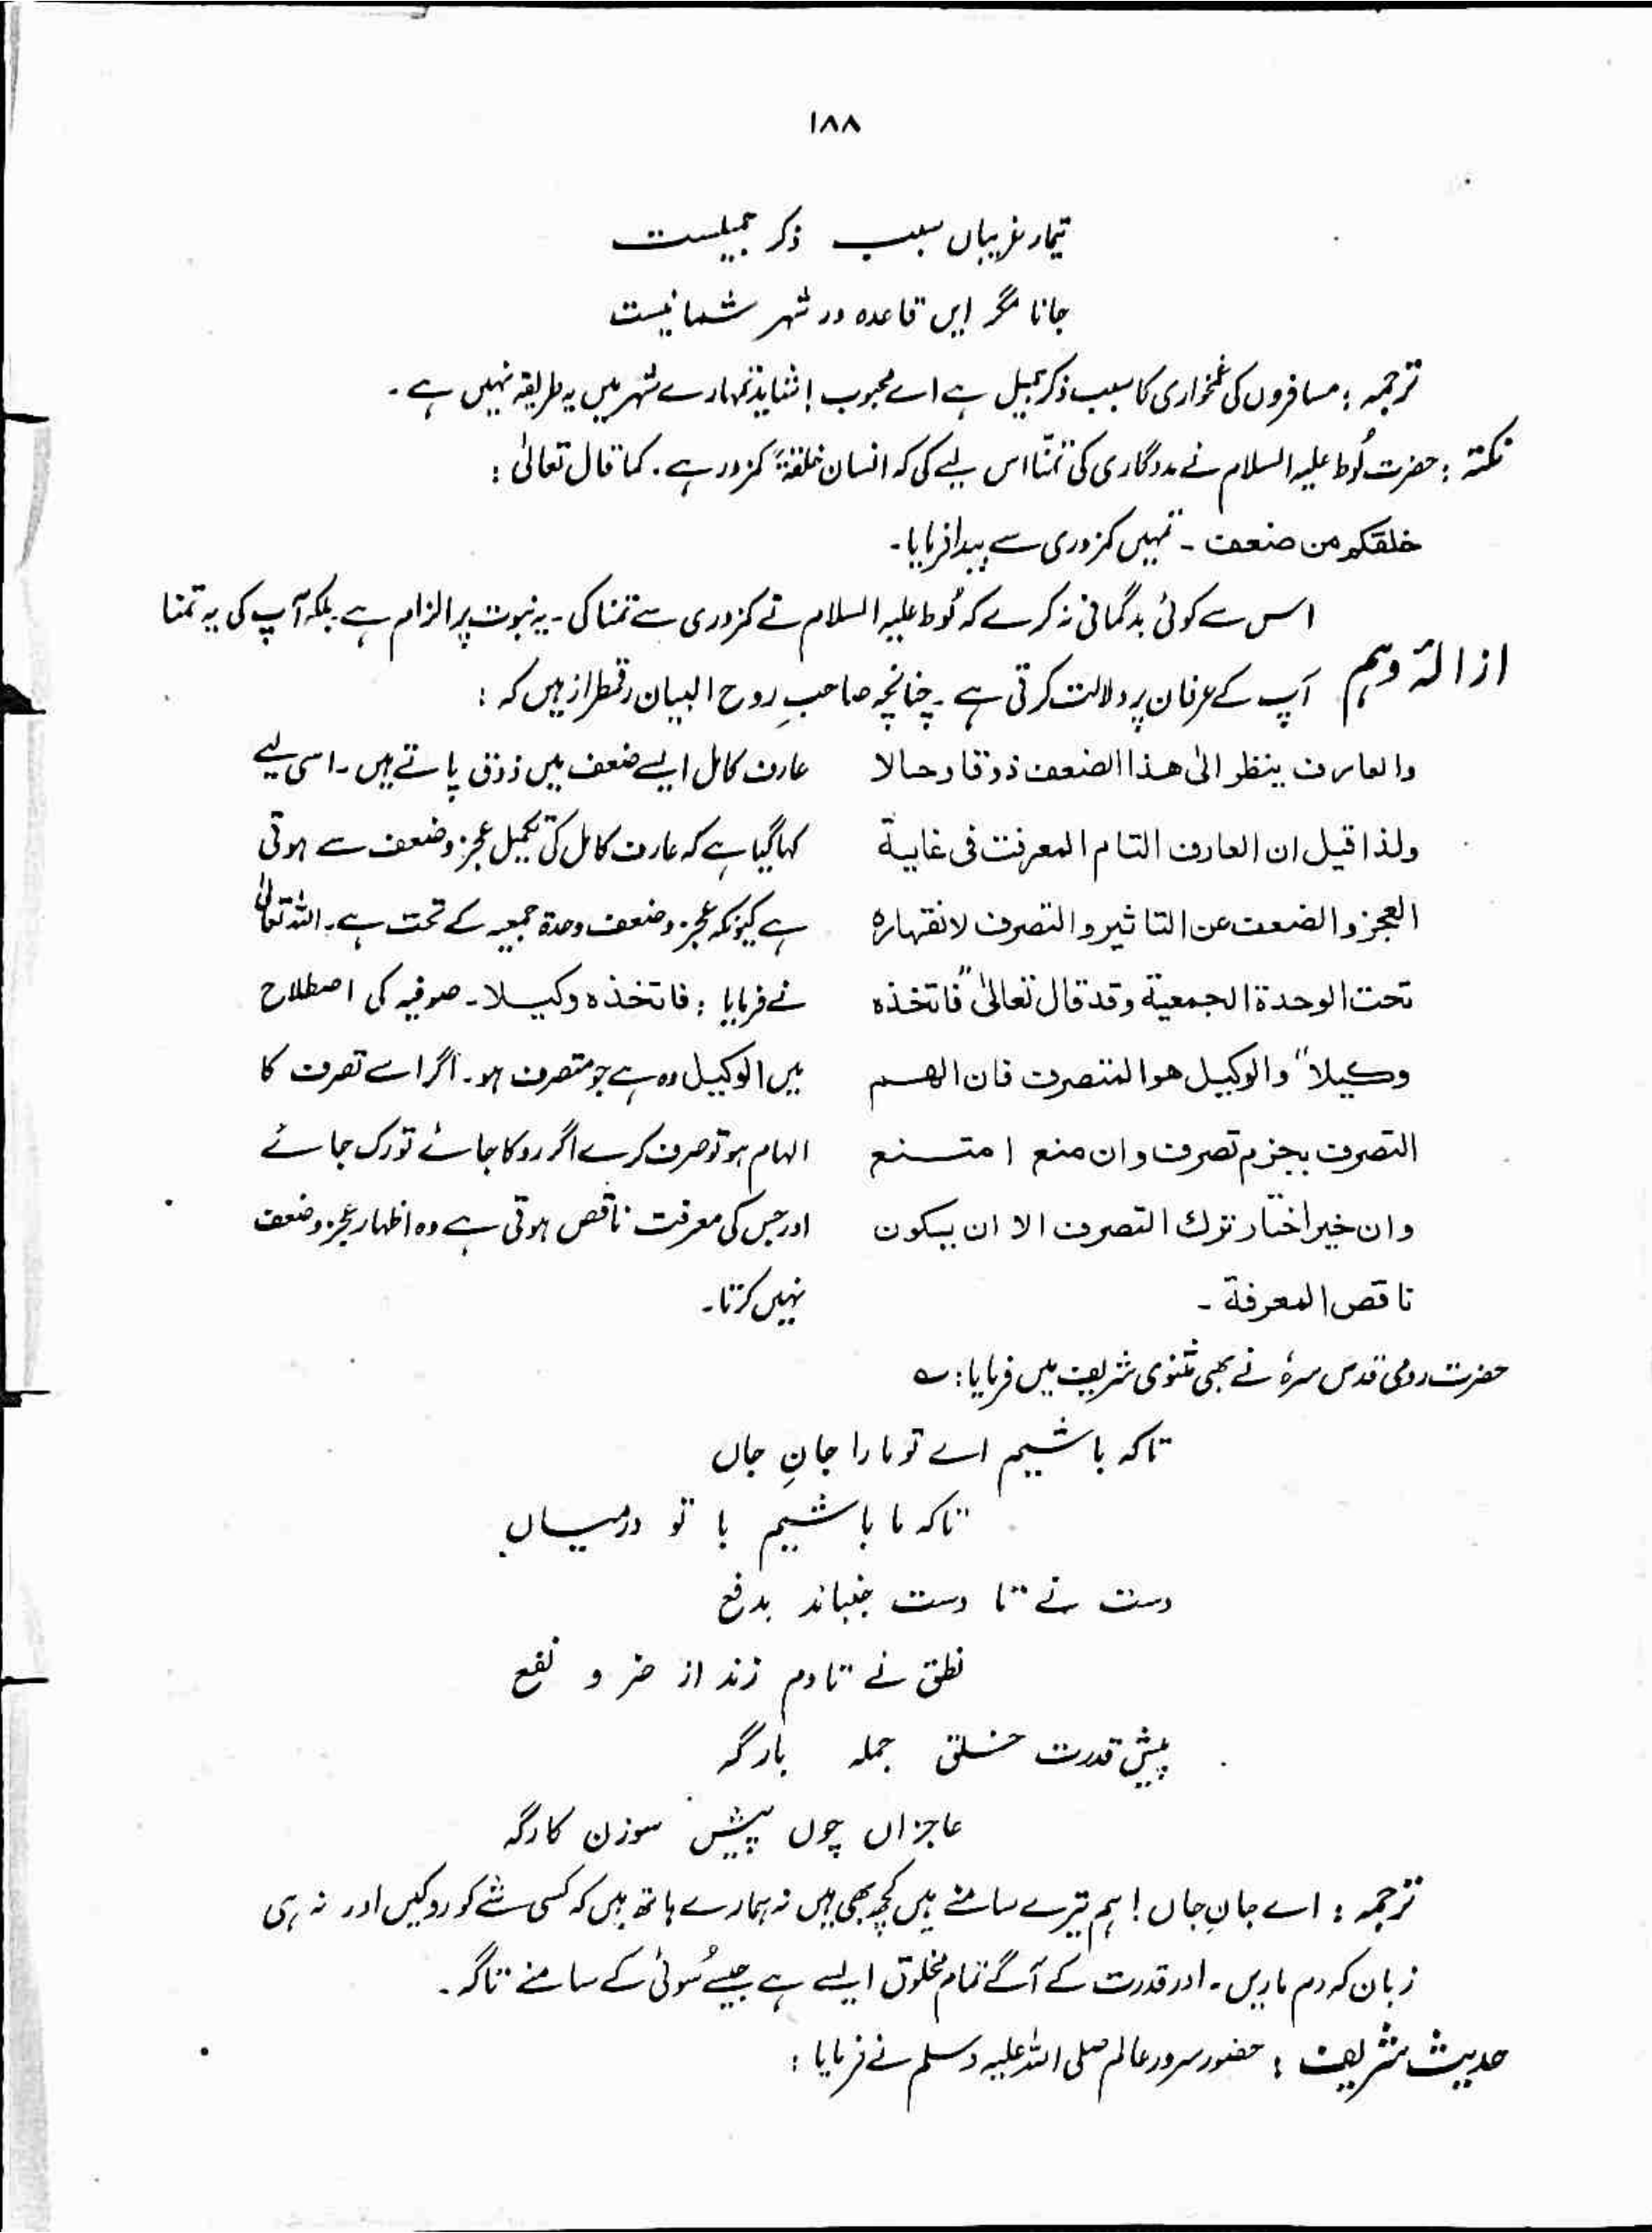 ۱۸۸
تیمار غریباں سبب ذکر جمیلست
جانا مگر ایں قاعدہ در شہر شما نیست
ترجمہ : مسافروں کی غمخواری کا سبب ذکر جمیل ہے اے محبوب ! شاید تمہارے شہر میں یہ طریقہ نہیں ہے ۔
نکتہ : حضرت لُوط علیہ السلام نے مددگاری کی تمنّا اس لیے کی کہ انسان خلقۃً کمزور ہے ۔ کما قال تعالیٰ :
خلقکم من ضعف ۔ تمہیں کمزوری سے پیدا فرمایا ۔
اس سے کوئی بدگمانی نہ کرے کہ لُوط علیہ السلام نے کمزوری سے تمنا کی ۔ یہ نبوت پر الزام ہے بلکہ آپ کی یہ تمنا
ازالۂ وہم آپ کے عرفان پر دلالت کرتی ہے ۔ چنانچہ صاحبِ روح البیان رقمطراز ہیں کہ :
والعارف ینظر الیٰ ھذا الضعف ذوقا وحالا
ولذا قیل ان العارف التام المعرفت فی غایۃ
العجز والضعف عن التاثیر والتصرف لانقھارہ
تحت الوحدۃ الجمعیۃ وقد قال تعالیٰ "فاتخذہ
وکیلا" والوکیل ھو المتصرف فان الھم
التصرف بجزم تصرف وان منع امتنع
وان خیر اختار ترك التصرف الا ان یکون
ناقص المعرفۃ ۔
عارف کامل ایسے ضعف میں ذوق پاتے ہیں ۔ اسی لیے
کہا گیا ہے کہ عارف کامل کی تکمیل عجز و ضعف سے ہوتی
ہے کیونکہ عجز و ضعف وحدۃ جمعیہ کے تحت ہے ۔ اللہ تعالیٰ
نے فرمایا : فاتخذہ وکیلا ۔ صوفیہ کی اصطلاح
میں الوکیل وہ ہے جو متصرف ہو ۔ اگر اسے تصرف کا
الہام ہو تو صرف کرے اگر روکا جائے تو رک جائے
اور جس کی معرفت ناقص ہوتی ہے وہ اظہار عجز و ضعف
نہیں کرتا ۔
حضرت رومی قدس سرہٗ نے بھی مثنوی شریف میں فرمایا : ؎
تا کہ باشیم اے تو ما را جانِ جاں
تا کہ ما باشیم با تو درمیاں
دست نے تا دست جنباند بدفع
نطق نے تا دم زند از ضر و نفع
پیش قدرت خلق جملہ بارگہ
عاجزاں چوں پیش سوزن کارگہ
ترجمہ : اے جانِ جاں ! ہم تیرے سامنے ہیں کچھ بھی ہیں نہ ہمارے ہاتھ ہیں کہ کسی شے کو روکیں اور نہ ہی
زبان کہ دم ماریں ۔ اور قدرت کے آگے تمام مخلوق ایسے ہے جیسے سُوئی کے سامنے تاگہ ۔
حدیث شریف : حضور سرور عالم صلی اللہ علیہ وسلم نے فرمایا :